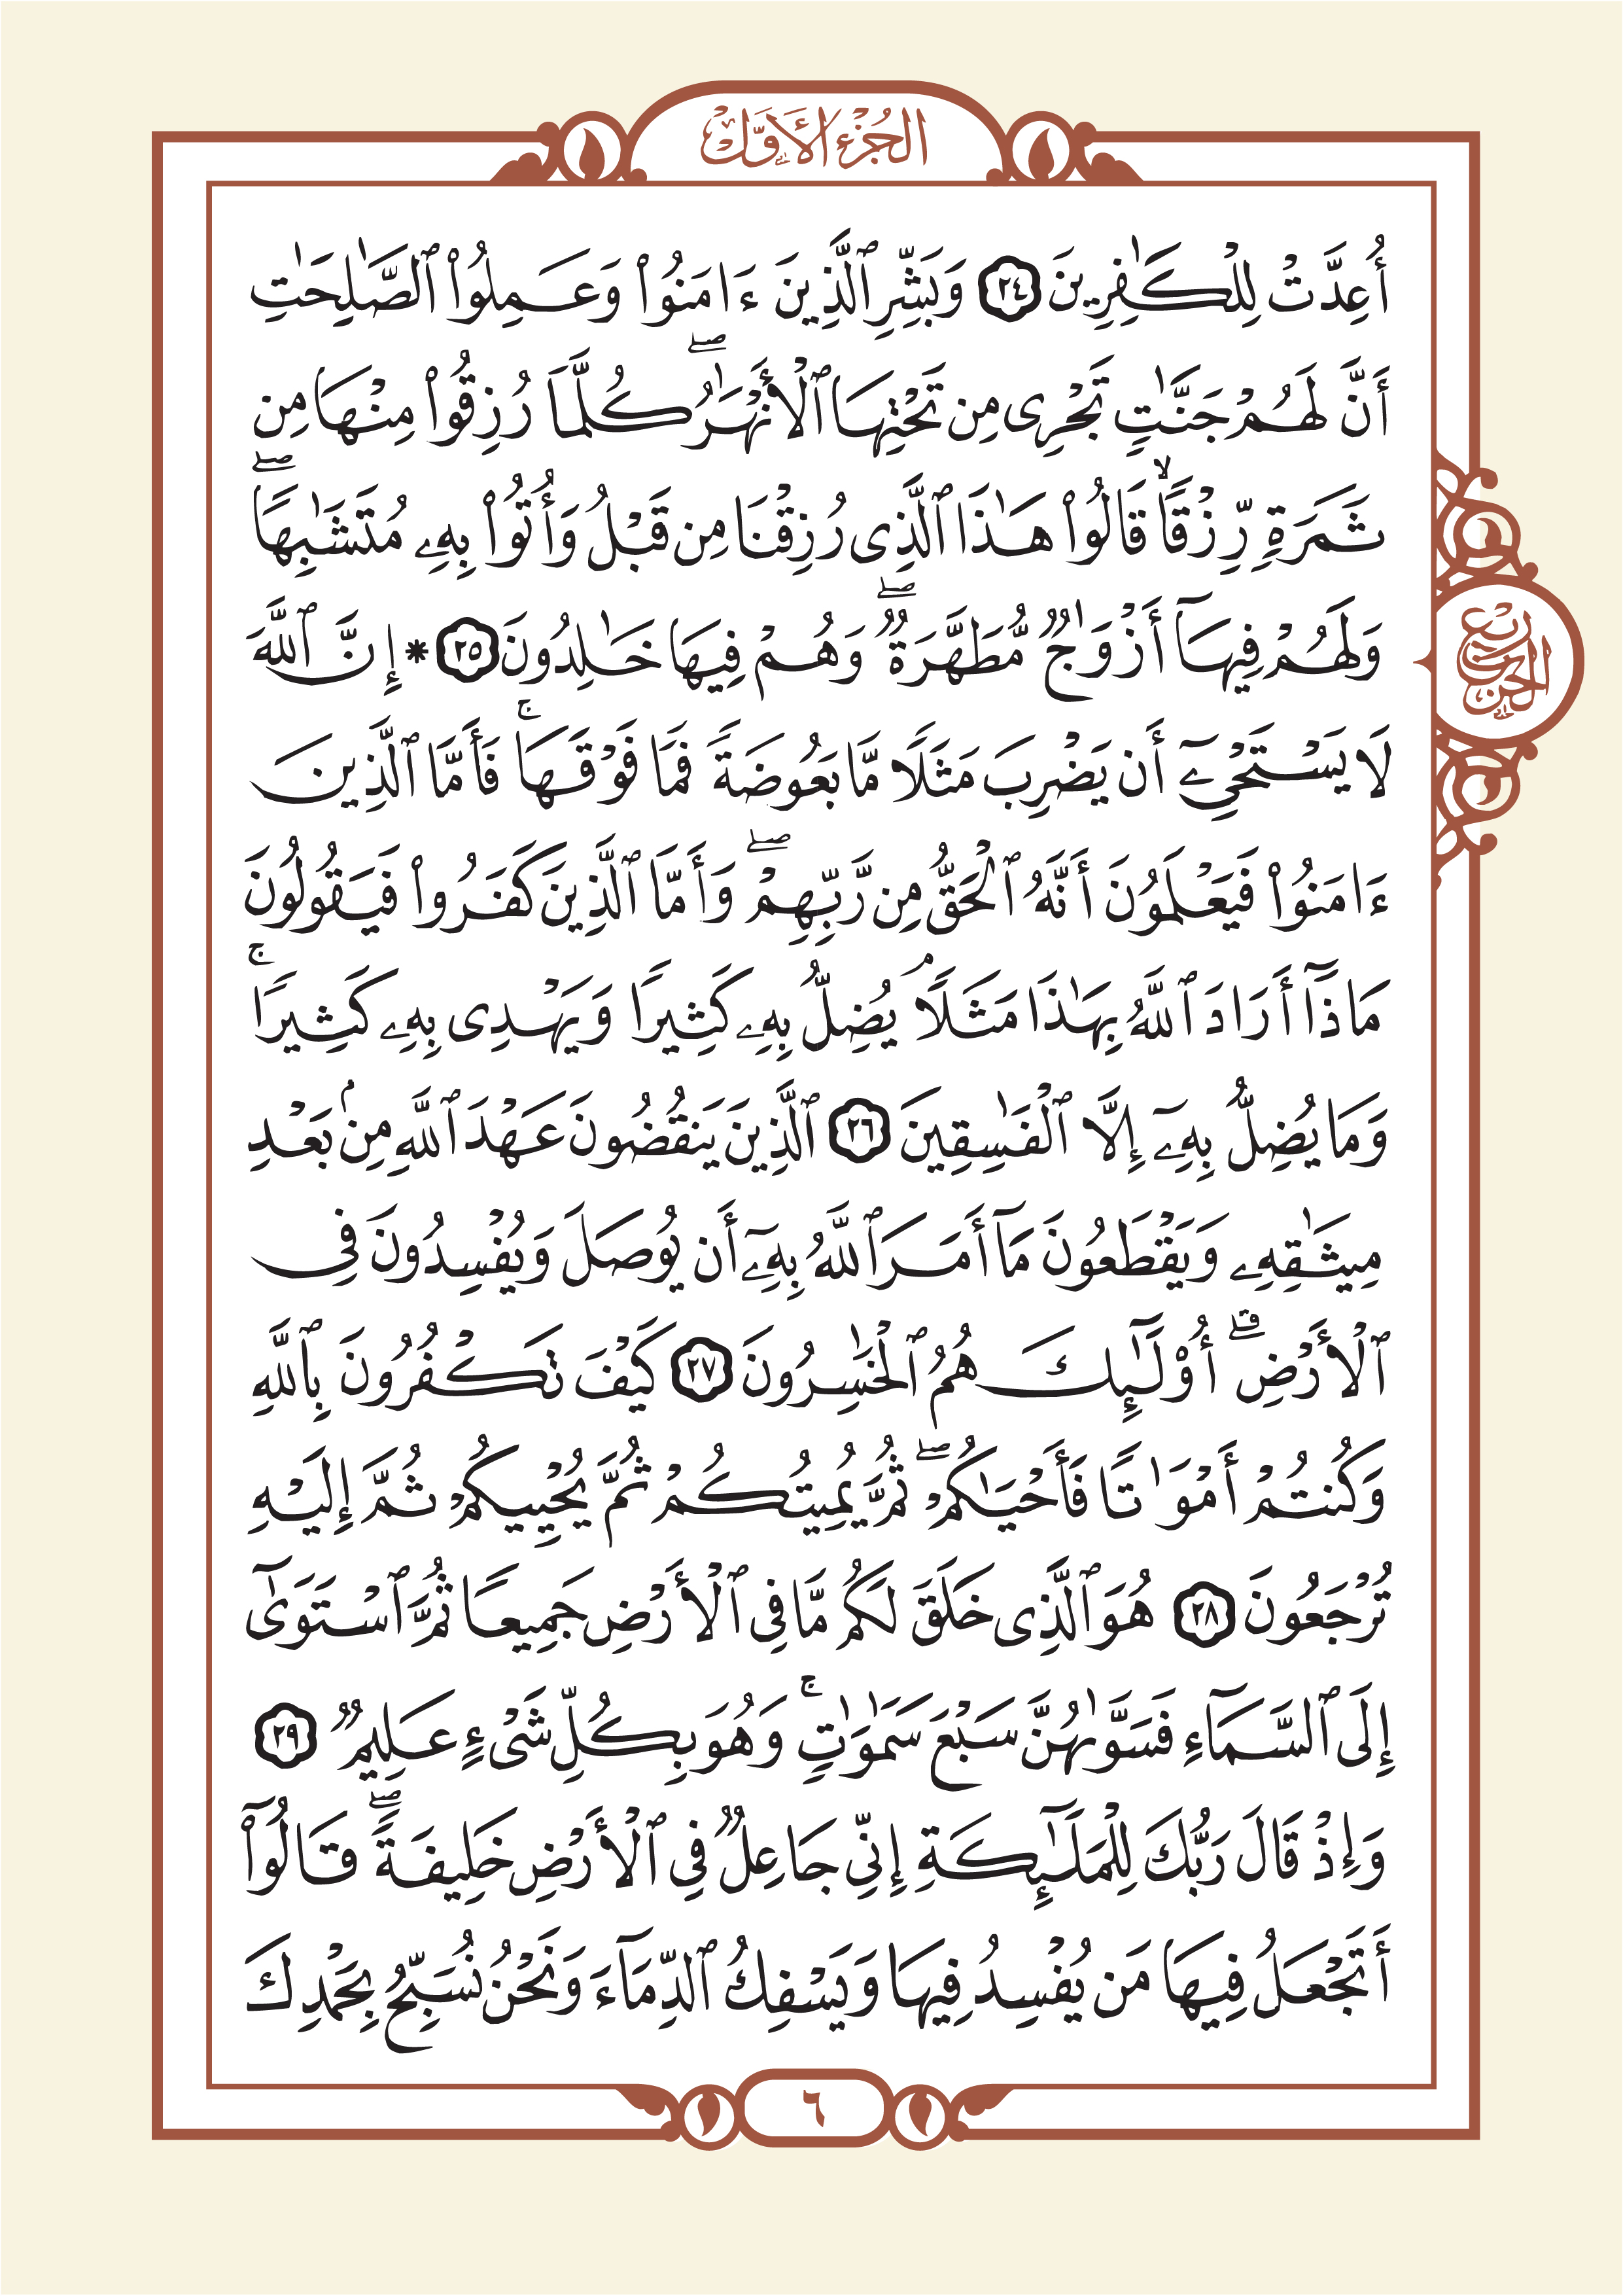 الجزء الأول
أُعِدَّتْ لِلْكَـٰفِرِينَ ٢٤ وَبَشِّرِ ٱلَّذِينَ ءَامَنُوا۟ وَعَمِلُوا۟ ٱلصَّـٰلِحَـٰتِ
أَنَّ لَهُمْ جَنَّـٰتٍ تَجْرِى مِن تَحْتِهَا ٱلْأَنْهَـٰرُ ۖ كُلَّمَا رُزِقُوا۟ مِنْهَا مِن
ثَمَرَةٍ رِّزْقًا ۙ قَالُوا۟ هَـٰذَا ٱلَّذِى رُزِقْنَا مِن قَبْلُ وَأُتُوا۟ بِهِۦ مُتَشَـٰبِهًا ۖ
وَلَهُمْ فِيهَآ أَزْوَٰجٌ مُّطَهَّرَةٌ ۖ وَهُمْ فِيهَا خَـٰلِدُونَ ٢٥ * إِنَّ ٱللَّهَ
لَا يَسْتَحْىِۦٓ أَن يَضْرِبَ مَثَلًا مَّا بَعُوضَةً فَمَا فَوْقَهَا ۚ فَأَمَّا ٱلَّذِينَ
ءَامَنُوا۟ فَيَعْلَمُونَ أَنَّهُ ٱلْحَقُّ مِن رَّبِّهِمْ ۖ وَأَمَّا ٱلَّذِينَ كَفَرُوا۟ فَيَقُولُونَ
مَاذَآ أَرَادَ ٱللَّهُ بِهَـٰذَا مَثَلًا ۘ يُضِلُّ بِهِۦ كَثِيرًا وَيَهْدِى بِهِۦ كَثِيرًا ۚ
وَمَا يُضِلُّ بِهِۦٓ إِلَّا ٱلْفَـٰسِقِينَ ٢٦ ٱلَّذِينَ يَنقُضُونَ عَهْدَ ٱللَّهِ مِنۢ بَعْدِ
مِيثَـٰقِهِۦ وَيَقْطَعُونَ مَآ أَمَرَ ٱللَّهُ بِهِۦٓ أَن يُوصَلَ وَيُفْسِدُونَ فِى
ٱلْأَرْضِ ۚ أُو۟لَـٰٓئِكَ هُمُ ٱلْخَـٰسِرُونَ ٢٧ كَيْفَ تَكْفُرُونَ بِٱللَّهِ
وَكُنتُمْ أَمْوَٰتًا فَأَحْيَـٰكُمْ ۖ ثُمَّ يُمِيتُكُمْ ثُمَّ يُحْيِيكُمْ ثُمَّ إِلَيْهِ
تُرْجَعُونَ ٢٨ هُوَ ٱلَّذِى خَلَقَ لَكُم مَّا فِى ٱلْأَرْضِ جَمِيعًا ثُمَّ ٱسْتَوَىٰٓ
إِلَى ٱلسَّمَآءِ فَسَوَّىٰهُنَّ سَبْعَ سَمَـٰوَٰتٍ ۚ وَهُوَ بِكُلِّ شَىْءٍ عَلِيمٌ ٢٩
وَإِذْ قَالَ رَبُّكَ لِلْمَلَـٰٓئِكَةِ إِنِّى جَاعِلٌ فِى ٱلْأَرْضِ خَلِيفَةً ۖ قَالُوٓا۟
أَتَجْعَلُ فِيهَا مَن يُفْسِدُ فِيهَا وَيَسْفِكُ ٱلدِّمَآءَ وَنَحْنُ نُسَبِّحُ بِحَمْدِكَ
ربع
الحزب
٦